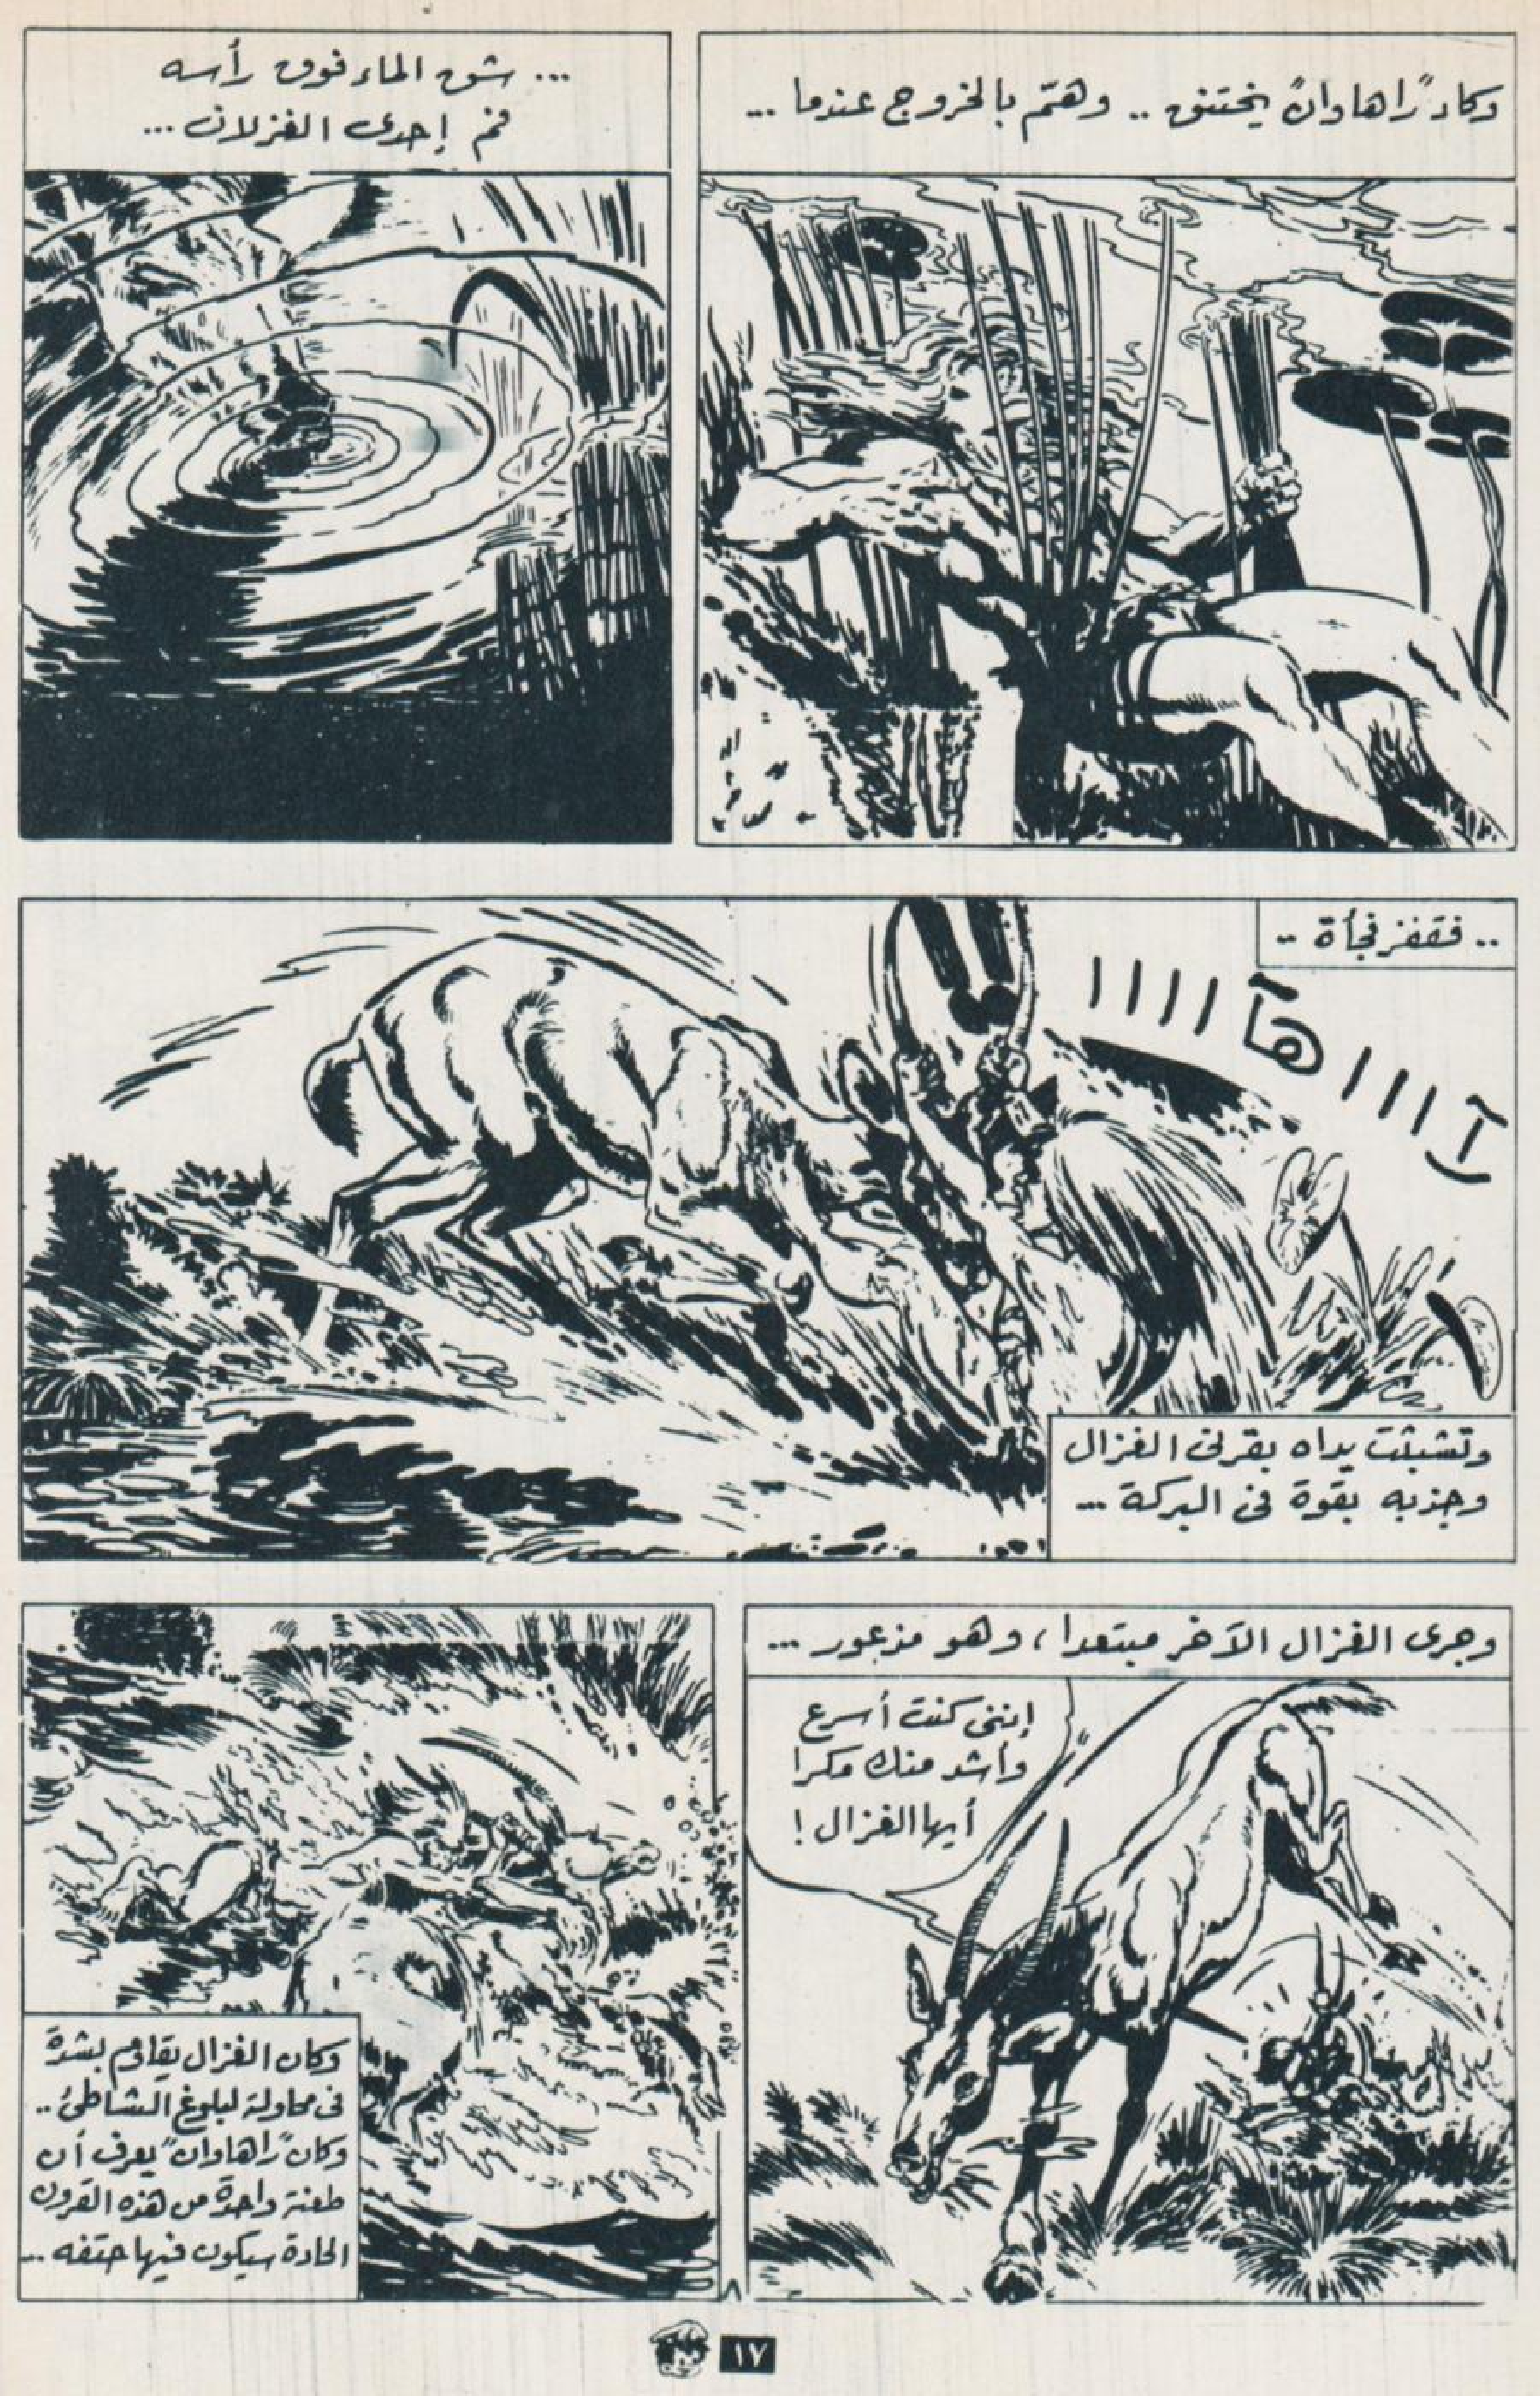 وكاد "راهاوان" يختنق .. وهمّ بالخروج عندما ...
... شق الماء فوق رأسه
فم إحدى الغزلان ...
.. فقفز فجأة ..
آ ا ا ا هآ ا ا ا ا !!
وتشبثت يداه بقرنى الغزال
وجذبه بقوة فى البركة ...
وجرى الغزال الآخر مبتعدا، وهو مذعور ...
إننى كنت أسرع
وأشد منك مكرا
أيها الغزال !
وكان الغزال يقاوم بشدة
فى محاولة لبلوغ الشاطئ ..
وكان "راهاوان" يعرف أن
طعنة واحدة من هذه القرون
الحادة سيكون فيها حتفه ...
٨
١٧